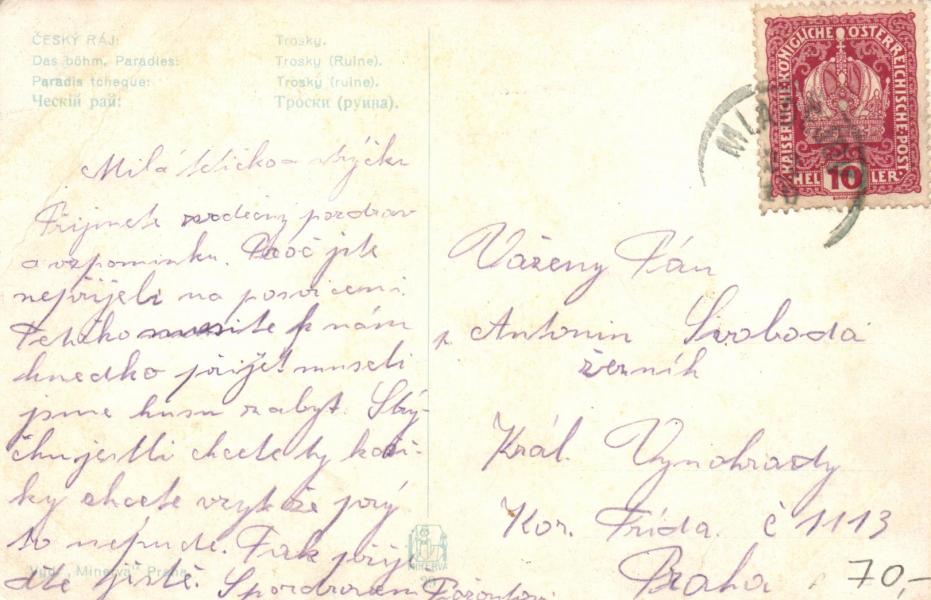 ČESKÝ RÁJ: Trosky.
Das böhm. Paradies: Trosky (Ruine).
Paradis tcheque: Trosky (ruine).
Ческій рай: Троски (руина).
KAISERLICHE KÖNIGLICHE ÖSTERREICHISCHE POST
10
HELLER
MLAD
Milá tetičko a strýčku
Přijmete srdečný pozdrav
a vzpomínku. Proč jste
nepřijeli na posvícení.
Tetičko musíte k nám
hnedko přijet museli
jsme husu zabyt. Strý-
čku jestli chcete ty
ky chcete prý
to nepude. Pak přije
dte jistě. S pozdravem
Vážený Pán
Antonin Svoboda
řezník
Král. Vynohrady
Kor. Třída. č 1113
Praha
70,-
Vyd. „Minerva" Praha
MINERVA